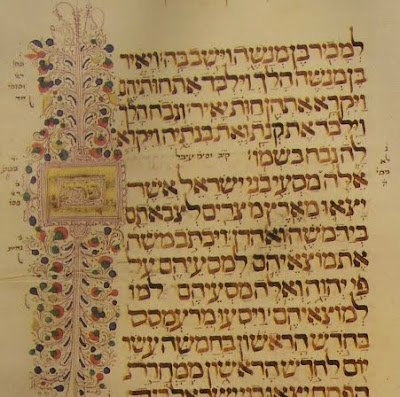 למכיר בן מנשה וישב בה ויאיר
בן מנשה הלך וילכד את חותיהם
ויקרא אתהן חות יאיר ונבח הלך
וילכד את קנת ואת בנתיה ויקרא
לה נבח בשמו
אלה מסעי בני ישראל אשר
יצאו מארץ מצרים לצבאתם
ביד משה ואהרן ויכתב משה
את מוצאיהם למסעיהם על
פי יהוה ואלה מסעיהם למו
למוצאיהם ויסעו מרעמסס
בחדש הראשון בחמשה עשר
יום לחדש הראשון ממחרת
הפסח יצאו בני ישראל